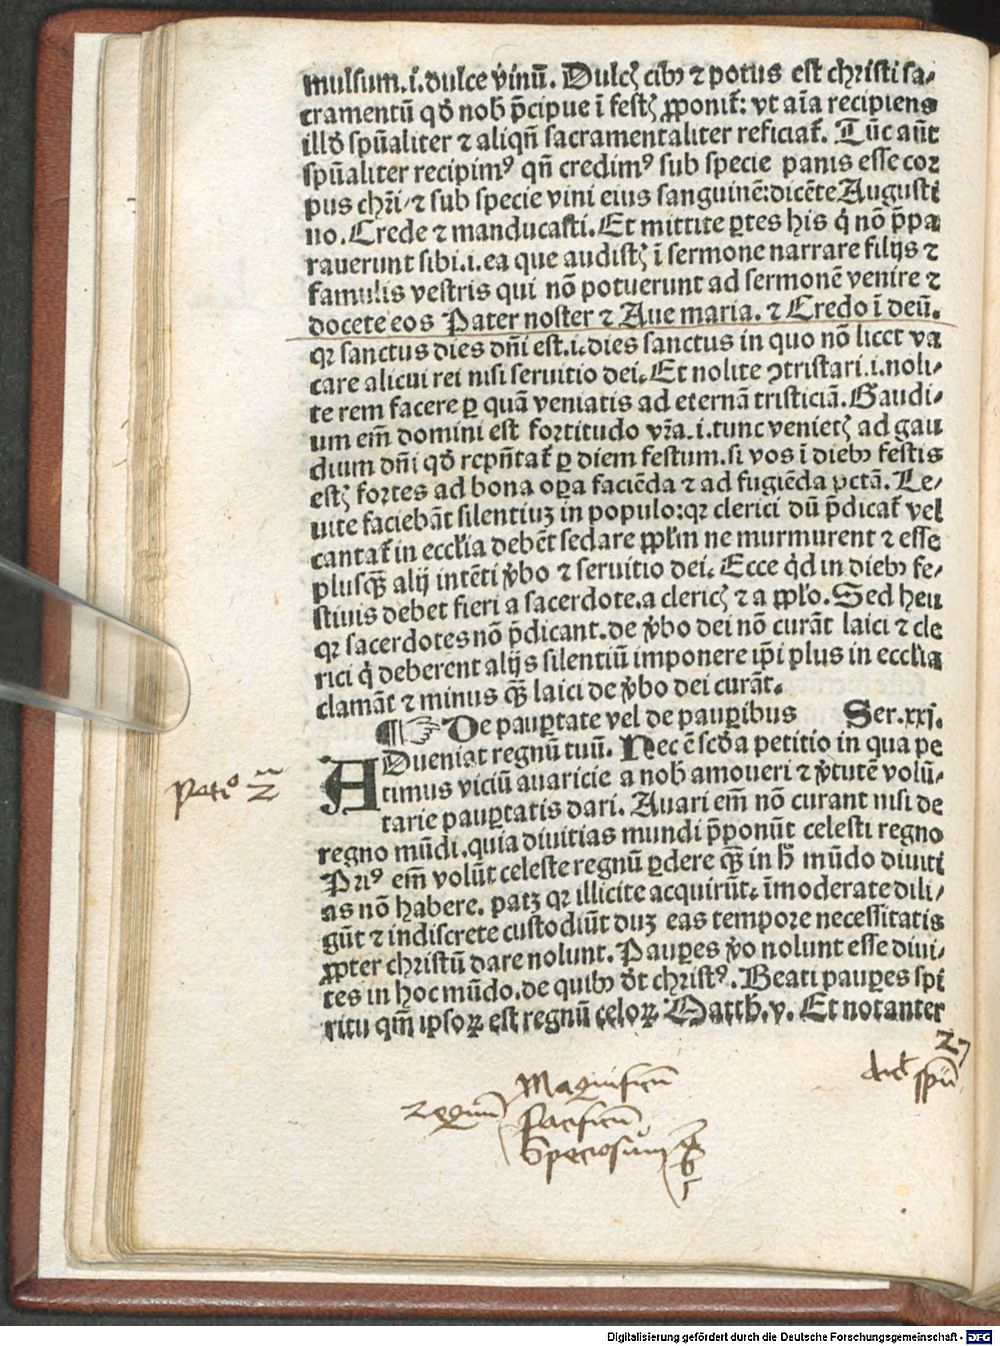 mulsum.i.dulce vinū. Dulcꝭ cibꝰ ⁊ potus est christi sa⸗
cramentū qđ nobꝭ p̄cipue ī festꝭ ꝓponit᷑: vt aīa recipiens
illđ spūaliter ⁊ aliqn̄ sacramentaliter reficiat᷑. Tūc aūt
spūaliter recipimꝰ qn̄ credimꝰ sub specie panis esse cor
pus chr̄i/⁊ sub specie vini eius sanguinē:dicēte Augusti
no. Crede ⁊ manducasti. Et mittite ꝑtes his q̇ nō p̄pa
rauerunt sibi.i.ea que audistꝭ ī sermone narrare filijs ⁊
famulis vestris qui nō potuerunt ad sermonē venire ⁊
docete eos Pater noster ⁊ Aue maria. ⁊ Credo ī deū.
qꝛ sanctus dies dn̄i est.i.dies sanctus in quo nō licet va
care alicui rei nisi seruitio dei. Et nolite ꝯtristari.i.noli⸗
te rem facere ꝑ quā veniatis ad eternā tristiciā. Gaudi⸗
um em̄ domini est fortitudo vr̄a.i.tunc venietꝭ ad gau
dium dn̄i qđ rep̄n̄tat᷑ ꝑ diem festum.si vos ī diebꝰ festis
estꝭ fortes ad bona oꝑa faciēda ⁊ ad fugiēda pctā. Le⸗
uite faciebāt silentiuꝫ in populo:qꝛ clerici dū p̄dicat᷑ vel
cantat᷑ in eccl̄ia debēt sedare ppl̄m ne murmurent ⁊ esse
plusꝗ̄ alij intēti v̇bo ⁊ seruitio dei. Ecce qđ in diebꝰ fe⸗
stiuis debet fieri a sacerdote.a clericꝭ ⁊ a ppl̄o. Sed heu
qꝛ sacerdotes nō p̄dicant.de v̇bo dei nō curāt laici ⁊ cle
rici q̇ deberent alijs silentiū imponere ip̄i plus in eccl̄ia
clamāt ⁊ minus ꝗ̄ laici de v̇bo dei curāt.
¶☞ De pauꝑtate vel de pauꝑibus Ser.xxj.
ADueniat regnū tuū. Hec ē scđa petitio in qua pe
timus viciū auaricie a nob amoueri ⁊ v̇tutē volū⸗
tarie pauꝑtatis dari. Auari em̄ nō curant nisi de
regno mūdi.quia diuitias mundi p̄ponūt celesti regno
Priꝰ em̄ volūt celeste regnū ꝑdere ꝗ̄ in h̄ mūdo diuiti
as nō habere. patꝫ qꝛ illicite acquirūt. īmoderate dili⸗
gūt ⁊ indiscrete custodiūt duꝫ eas tempore necessitatis
ꝓpter christū dare nolunt. Pauꝑes v̇o nolunt esse diui⸗
tes in hoc mūdo.de quibꝰ dt̄ christꝰ. Beati pauꝑes spi
ritu qm̄ ipsoꝝ est regnū celoꝝ Matth.v. Et notanter
Magnificū
Pacificū
Speciosum
Digitalisierung gefördert durch die Deutsche Forschungsgemeinschaft - DFG